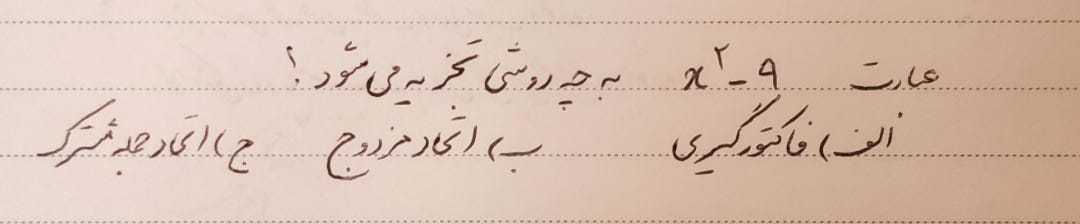 عبارت x²-۹ به چه روشی تجزیه می شود؟
الف) فاکتورگیری ب) اتحاد مزدوج ج) اتحاد جمله مشترک